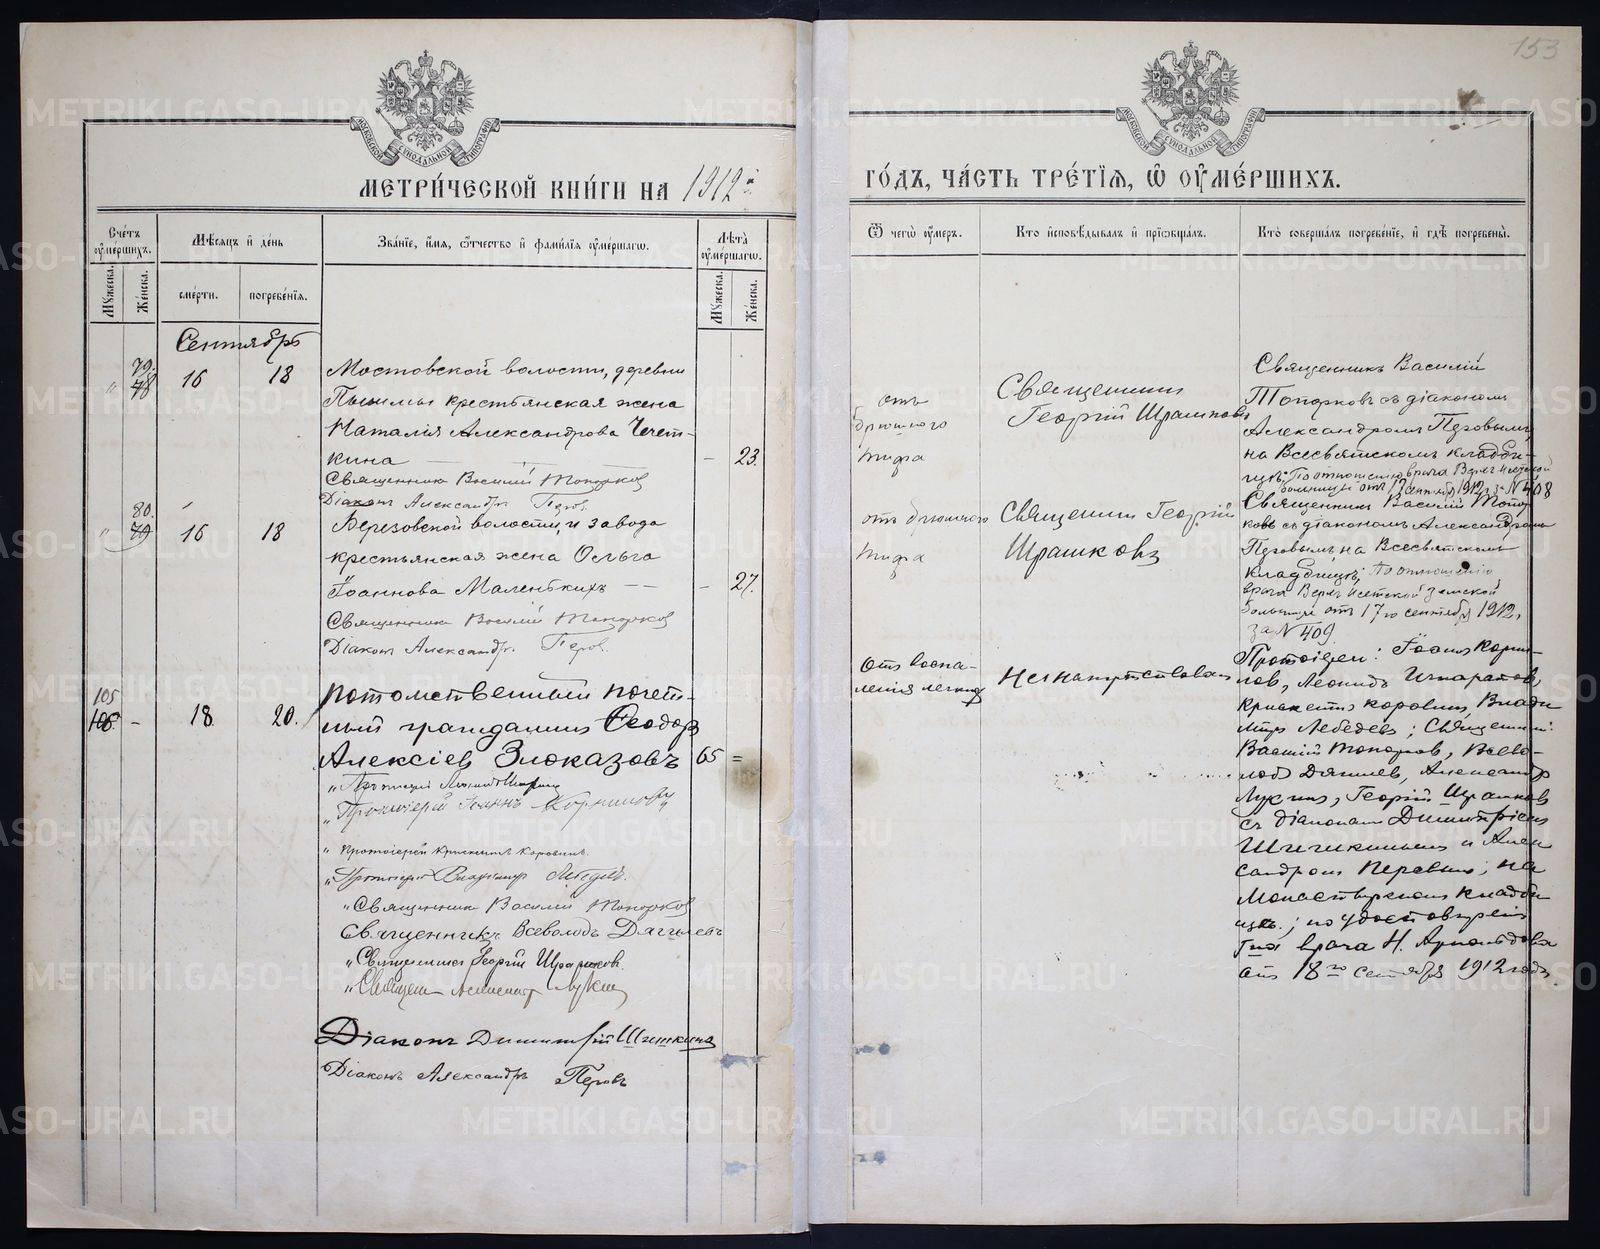 153
МЕТРИ́ЧЕСКОЙ КНИ́ГИ НА 1912й
ГО́ДЪ, ЧА́СТЬ ТРЕ́ТІЯ, Ѡ ОУМЕ́РШИХЪ.
Счетъ оумершихъ.
Мужеска.
Женска.
Мѣсяцъ и день
смерти.
погребенія.
Званіе, имя, отчество и фамилія оумершагѡ.
Лѣта оумершагѡ.
Мужеска.
Женска.
Ѿ чегѡ оумеръ.
Кто исповѣдывалъ и пріобщалъ.
Кто совершалъ погребеніе, и гдѣ погребены.
Сентябрь
79.
78
16
18
Мостовской волости, деревни
Пышмы крестьянская жена
Наталія Александрова Чечет-
кина
– 23.
Священникъ Василій Топорковъ
Діаконъ Александръ Перовъ
отъ
брюшного
тифа
Священникъ
Георгій Шрамковъ
Священникъ Василій
Топорковъ съ діакономъ
Александромъ Перовымъ,
на Всесвятскомъ кладби-
щѣ; По отношенію врача Верхъ Исетской
больницы отъ 17 сентября 1912 г. за № 408
80.
79
16
18
Березовской волости, и завода
крестьянская жена Ольга
Іоаннова Маленькихъ
– 27.
Священникъ Василій Топорковъ
Діаконъ Александръ Перовъ
отъ брюшного
тифа
Священникъ Георгій
Шрамковъ
Священникъ Василій Топор-
ковъ съ діакономъ Александромъ
Перовымъ, на Всесвятскомъ
кладбищѣ; По отношенію
врача Верхъ Исетской земской
больницы отъ 17го сентября 1912 г.
за № 409
105
106. –
18
20.
Потомственный почет-
ный гражданинъ Ѳеодоръ
Алексіев Злоказовъ
65 =
„Протоіерей Іоаннъ Корниловъ
„Протоіерей Крискентъ Коровинъ.
„Протоіерей Владиміръ Лебедевъ.
„Священникъ Василій Топорковъ
Священникъ Всеволодъ Дягилевъ
„Священникъ Георгій Шрамков.
„Священ. Александръ Лукин
Діаконъ Димитрій Шишкинъ
Діаконъ Александръ Перовъ
Отъ воспа-
ленія легкихъ
Не напутствован
Протоіереи: Іоаннъ Корни-
лов, Леонидъ Игноратов,
Крискентъ Коровинъ, Влади
міръ Лебедевъ; Священники:
Василій Топорков, Всево-
лодъ Дягилев, Александръ
Лукинъ, Георгій Шрамков
съ діаконами Димитріем
Шишкинымъ и Алек
сандром Перовымъ; на
Монастырском кладби
щѣ.; по удостовѣренію
врача Н. Арнольдова
отъ 18го сентября 1912 года.
METRIKI.GASO-URAL.RU